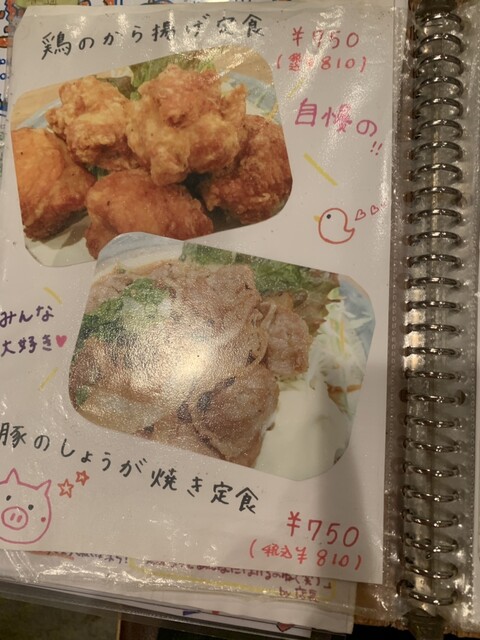 鶏のから揚げ定食
¥750
(税込¥810)
自慢の!!
みんな
大好き♥
豚のしょうが焼き定食
¥750
(税込¥810)